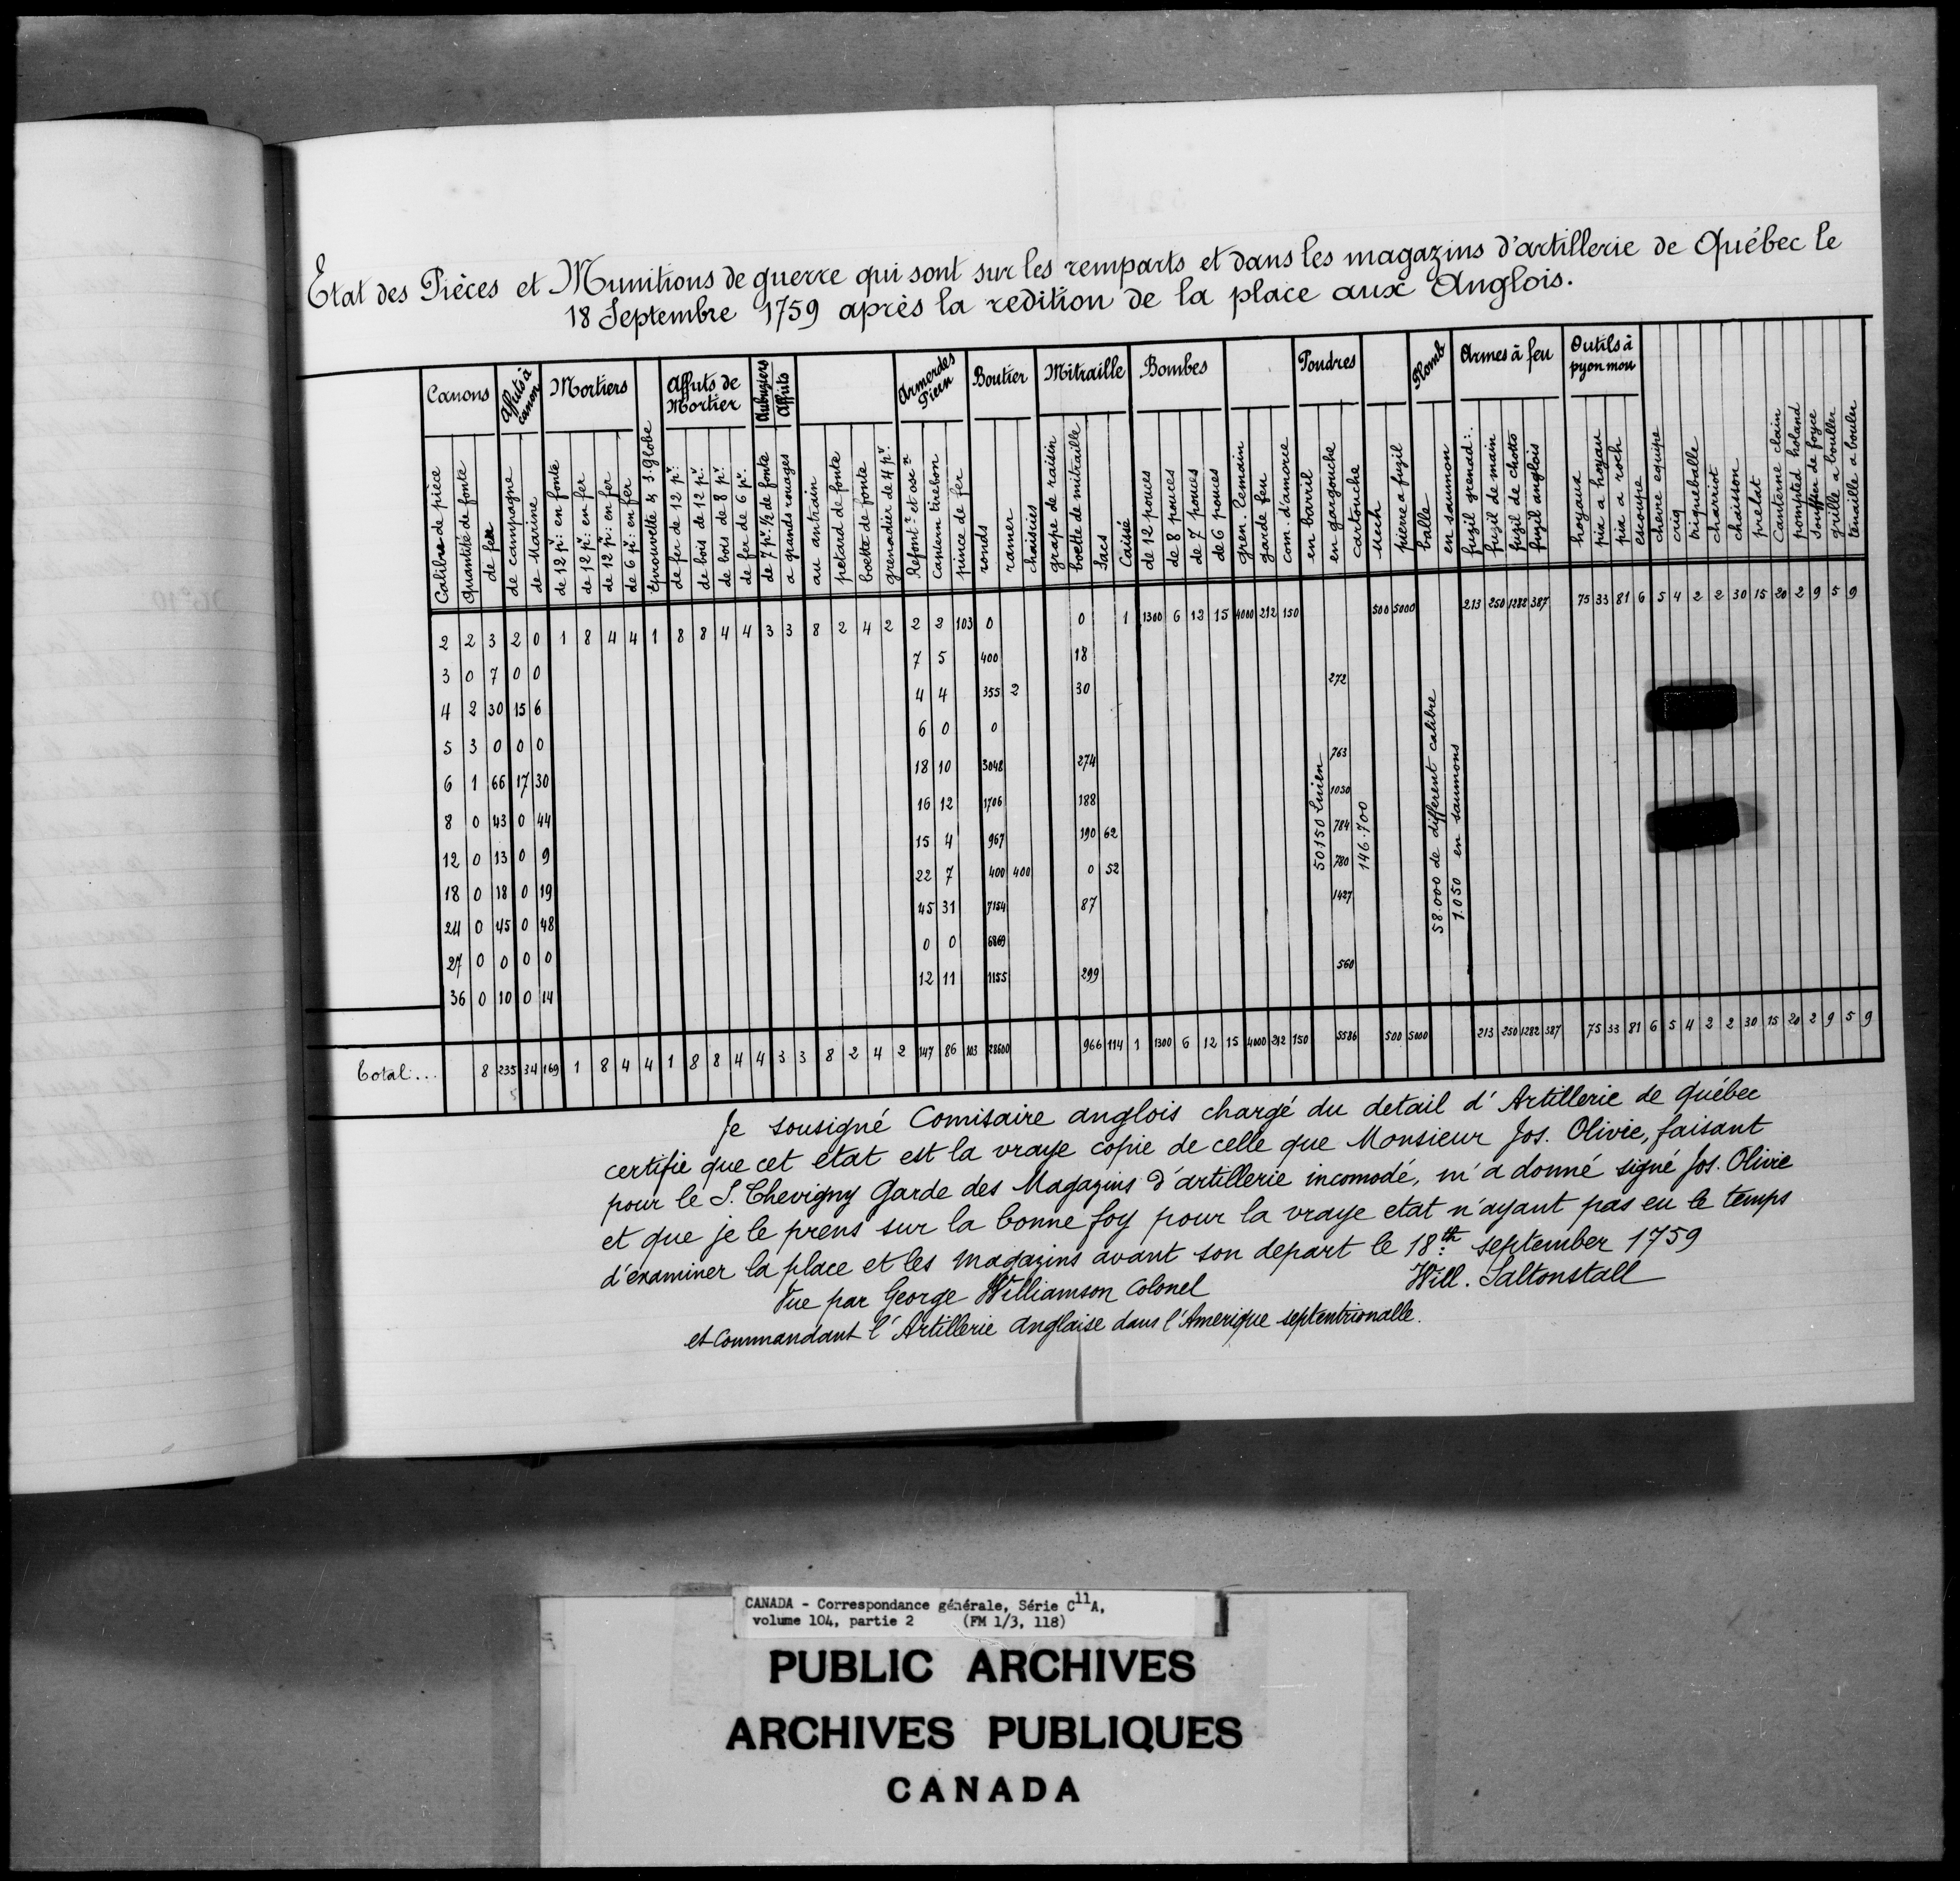 Etat des Pièces et Munitions de guerre qui sont sur les remparts et dans les magazins d'artillerie de Québec le
18 Septembre 1759 après la redition de la place aux Anglois.
Canons | Affuts à canon | Mortiers | Affuts de Mortier | Aubuziers | Affuts | Boutier | Mitraille | Bombes | Poudres | Plomb | Armes à feu | Outils à pyon mou
Calibre de pièce
Quantité de fonte
de fer
de campagne
de Marine
de 12 p.: en fonte
de 12 p.: en fer
de 12 p.: en fer
de 6 p.: en fer
Epruuvette & S. Globe
de fer de 12 p.:
de bois de 12 p.:
de bois de 8 p.:
de fer de 6 p.:
de 7 p. ½ de fonte
a grands rouages
au antrain
petard de fonte
boette de fonte
grenadier de 4 p.
Canteren tirebon
pince de fer
ronds
ramer
chaisnies
grape de raisin
boette de mitraille
Sacs
Caisse
de 12 pouces
de 8 pouces
de 7 pouces
de 6 pouces
gren. Cemain
garde feu
com. d'amorce
en barril
en gargouche
cartouche
Mech
pierre a fuzil
balle
en saumon
fuzil grenad:.
fuzil de main
fuzil de chotto
fuzil anglois
hoyaux
pix a hoyau
pix a roch
escoupe
chevre equipe
criq
triqueballe
charriot
chaisson
prelat
Canterne clain
pomped holand
souffler de foyce
grille a bouller
tenaille a bouler
2 2 3 2 0 1 8 4 4 1 8 8 4 4 3 3 8 2 4 2 2 2 103 0 0 1 1300 6 12 15 4000 212 150 500 5000 213 250 1282 387 75 33 81 6 5 4 2 2 30 15 20 2 9 5 9
3 0 7 0 0 7 5 400 18
4 2 30 15 6 4 4 355 2 30 272
5 3 0 0 0 6 0 0
6 1 66 17 30 18 10 3048 274 763
8 0 43 0 44 16 12 1706 188 1030
12 0 13 0 9 15 4 967 190 62 784
18 0 18 0 19 22 7 400 400 0 52 780
24 0 45 0 48 45 31 7154 87 1427
27 0 0 0 0 0 0 6869
36 0 10 0 14 12 11 1155 299 560
146.700
58.000 de different calibre
1.050 en saumons
Total... 8 235 34 169 1 8 4 4 1 8 8 4 4 3 3 8 2 4 2 147 86 103 28600 966 114 1 1300 6 12 15 4000 212 150 5586 500 5000 213 250 1282 387 75 33 81 6 5 4 2 2 30 15 20 2 9 5 9
Je sousigné Comisaire anglois chargé du detail d'Artillerie de Québec
certifie que cet etat est la vraye copie de celle que Monsieur Jos. Olivie, faisant
pour le S. Chevigny Garde des Magazins d'artillerie incomodé, m'a donné signé Jos. Olivie
et que je le prens sur la bonne foy pour la vraye etat n'ayant pas eu le temps
d'examiner la place et les magazins avant son depart le 18th september 1759
Vue par George Williamson Colonel Will. Saltonstall
et Commandant l'Artillerie anglaise dans l'Amerique septentrionalle.
CANADA - Correspondance générale, Série C11A,
volume 104, partie 2 (FM 1/3, 118)
PUBLIC ARCHIVES
ARCHIVES PUBLIQUES
CANADA